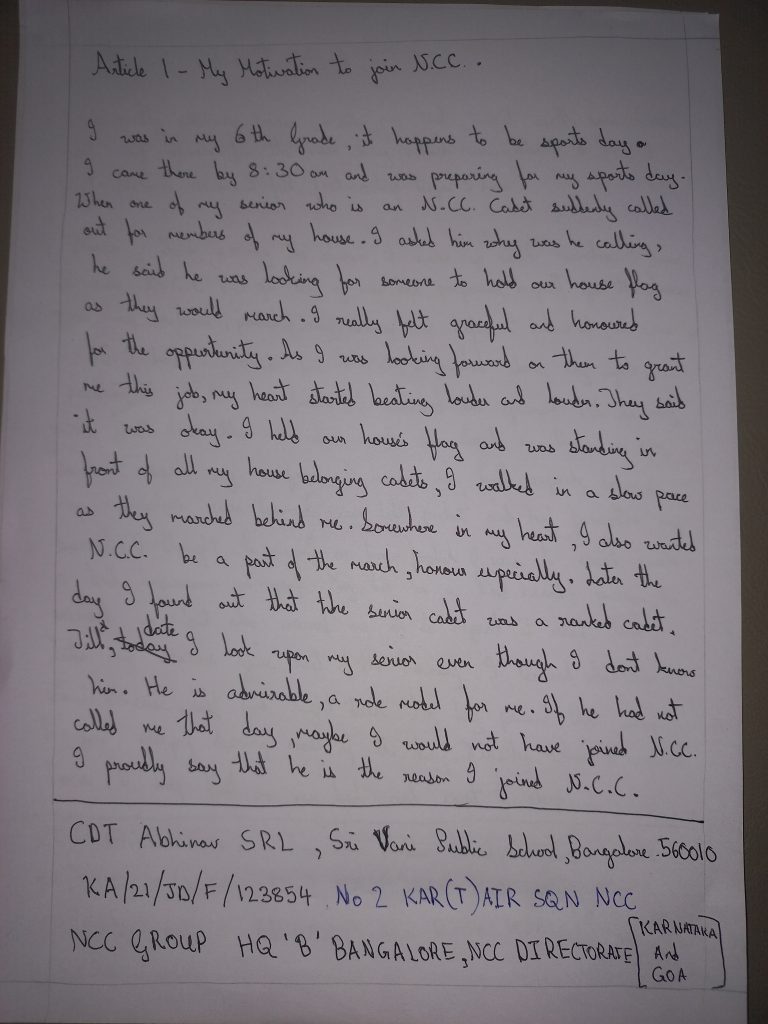 Article 1 - My Motivation to join N.C.C. .
I was in my 6th Grade, it happens to be sports day.
I came there by 8:30 am and was preparing for my sports day.
When one of my senior who is an N.C.C. Cadet suddenly called
out for members of my house. I asked him why was he calling,
he said he was looking for someone to hold our house flag
as they would march. I really felt graceful and honoured
for the oppurtunity. As I was looking forward on them to grant
me this job, my heart started beating louder and louder. They said
it was okay. I held our house's flag and was standing in
front of all my house belonging cadets, I walked in a slow pace
as they marched behind me. Somewhere in my heart, I also wanted
N.C.C. be a part of the march, honour especially. Later the
day I found out that the senior cadet was a ranked cadet.
Till, date I look upon my senior even though I dont know
him. He is admirable, a role model for me. If he had not
called me that day, maybe I would not have joined N.C.C.
I proudly say that he is the reason I joined N.C.C.
CDT Abhinav SRL, Sri Vani Public School, Bangalore.560010
KA/21/JD/F/123854 No 2 KAR(T)AIR SQN NCC
NCC GROUP HQ 'B' BANGALORE, NCC DIRECTORATE [KARNATAKA
And
GOA]